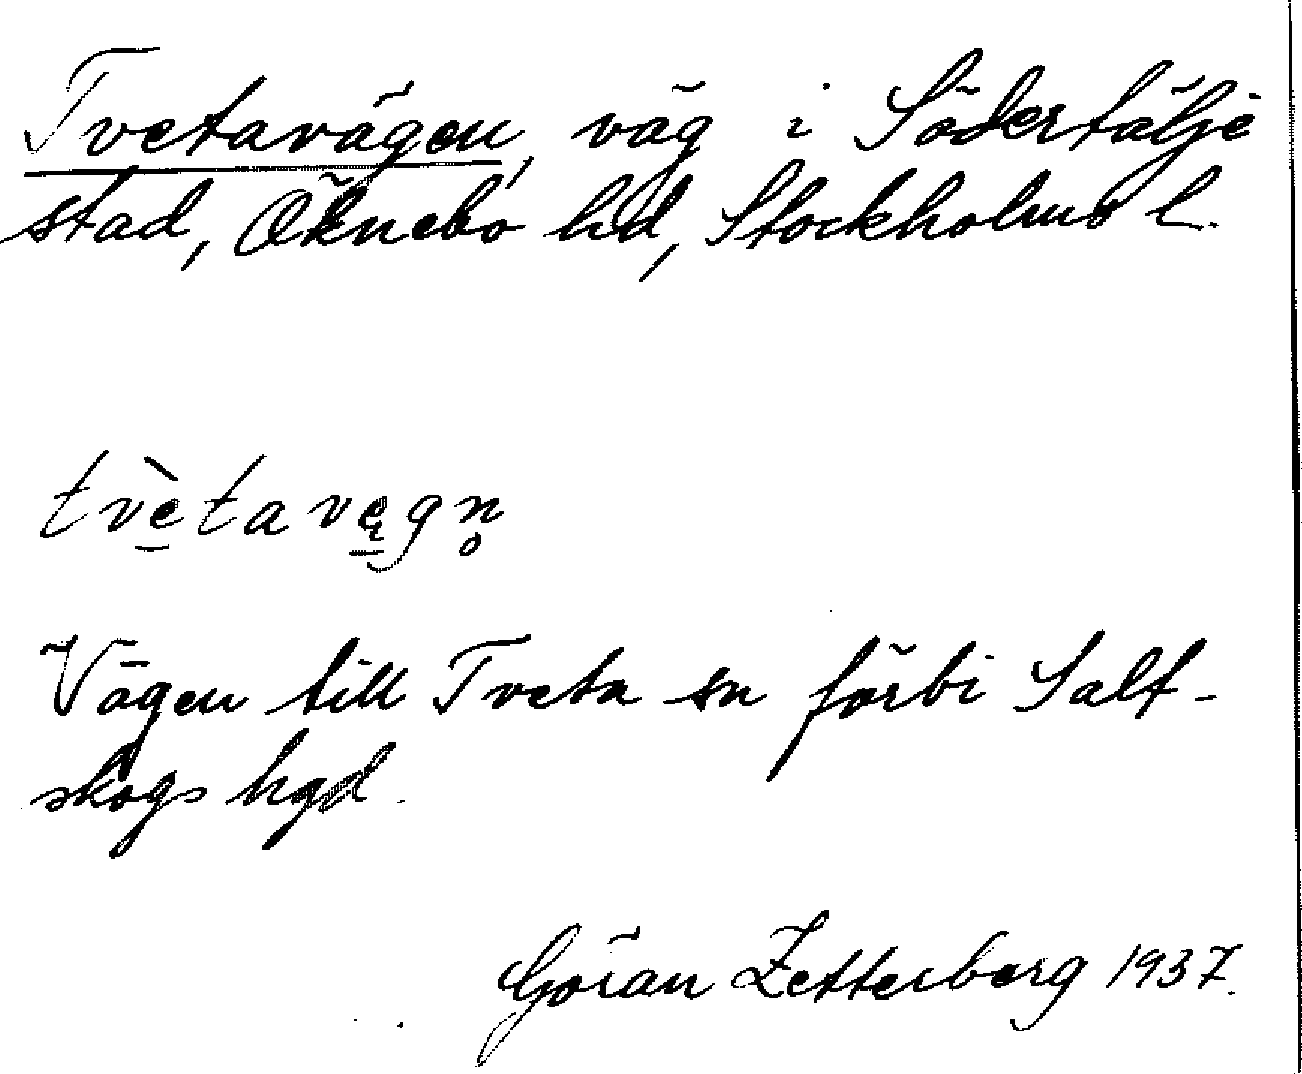 Tvetavägen, väg i Södertälje
stad, Öknebo hd, Stockholms l.
tvè̱tavę̱gn̥
Vägen till Tveta sn förbi Salt-
skogs hgd.
Göran Zetterberg 1937.